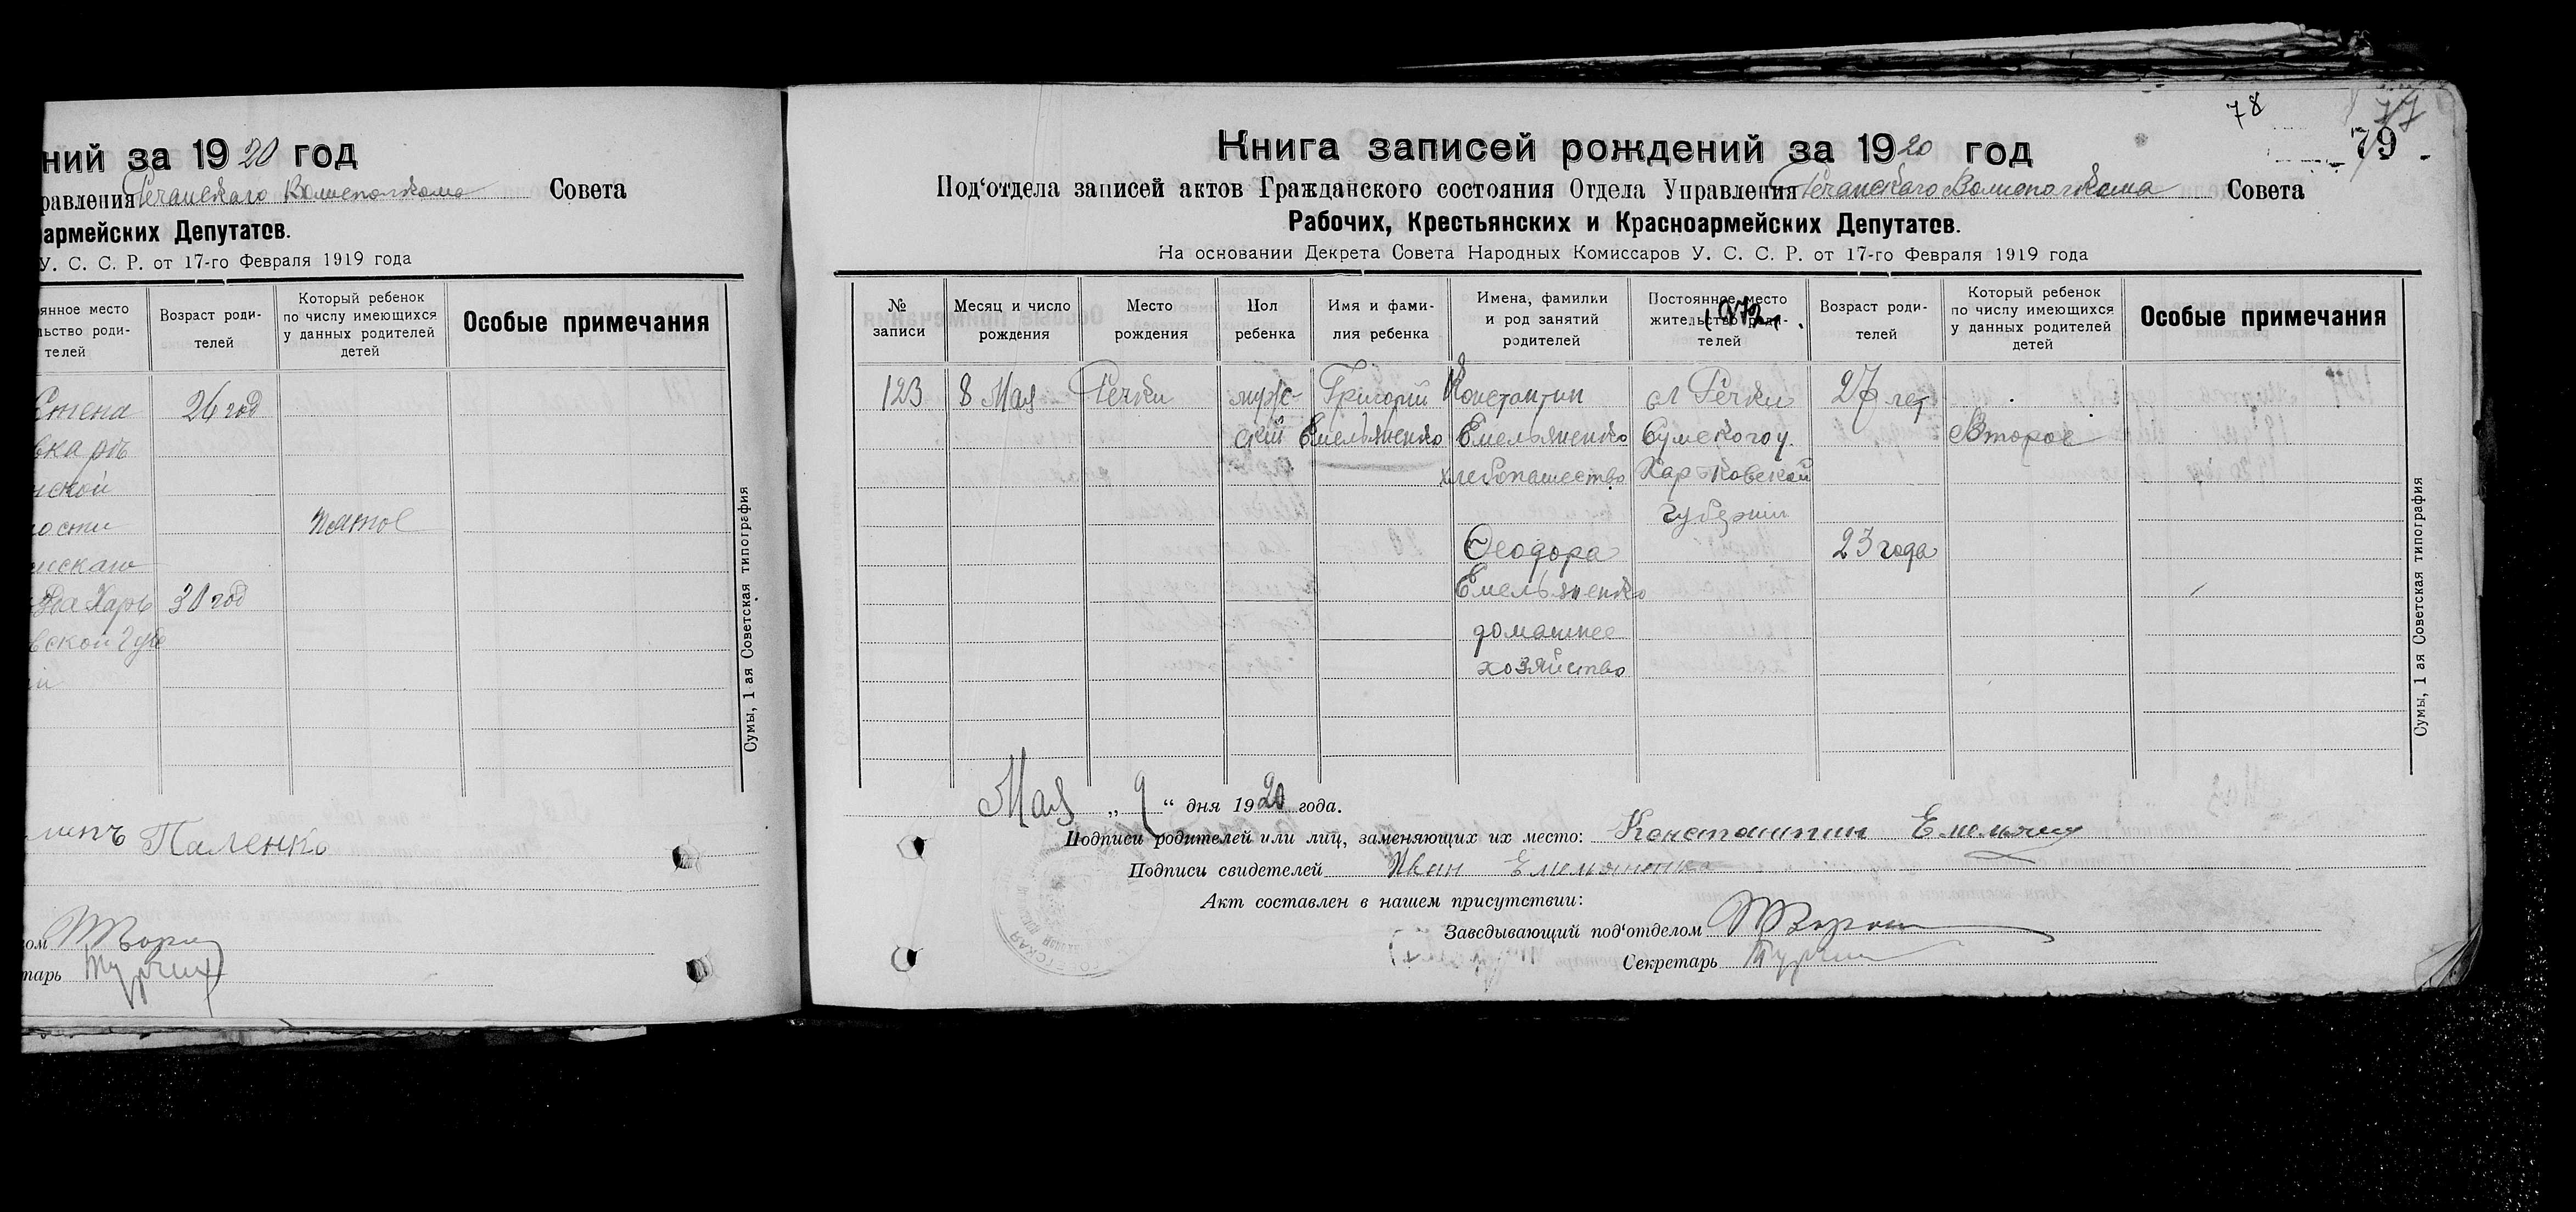 ний за 1920 год
равления Речанскаго Волисполкома Совета
армейских Депутатов.
У. С. С. Р. от 17-го Февраля 1919 года
янное место
льство роди-
телей
Возраст роди-
телей
Который ребенок
по числу имеющихся
у данных родителей
детей
Особые примечания
26 год
нской
ости
Пятое
30 год
Сумы, 1 ая Советская типография
Паленко
ом
тарь
78
77
79
Книга записей рождений за 1920 год
Под‘отдела записей актов Гражданского состояния Отдела Управления Речанскаго Волисполкома Совета
Рабочих, Крестьянских и Красноармейских Депутатов.
На основании Декрета Совета Народных Комиссаров У. С. С. Р. от 17-го Февраля 1919 года
№
записи
Месяц и число
рождения
Место
рождения
Пол
ребенка
Имя и фами-
лия ребенка
Имена, фамилии
и род занятий
родителей
Постоянное место
жительство роди-
телей
Возраст роди-
телей
Который ребенок
по числу имеющихся
у данных родителей
детей
Особые примечания
123 8 Мая Речки муж- Григорий Константин сл Речки 27 лет
ский Емельяненко Емельяненко Сумского у. Второе
хлебопашество Харьковской
губернии
Феодора 23 года
Емельяненко
домашнее
хозяйство
Сумы, 1 ая Советская типография
Мая „ 9 “ дня 1920 года.
Подписи родителей или лиц, заменяющих их место: Константин
Подписи свидетелей Иван
Акт составлен в нашем присутствии:
Заведывающий под‘отделом
Секретарь